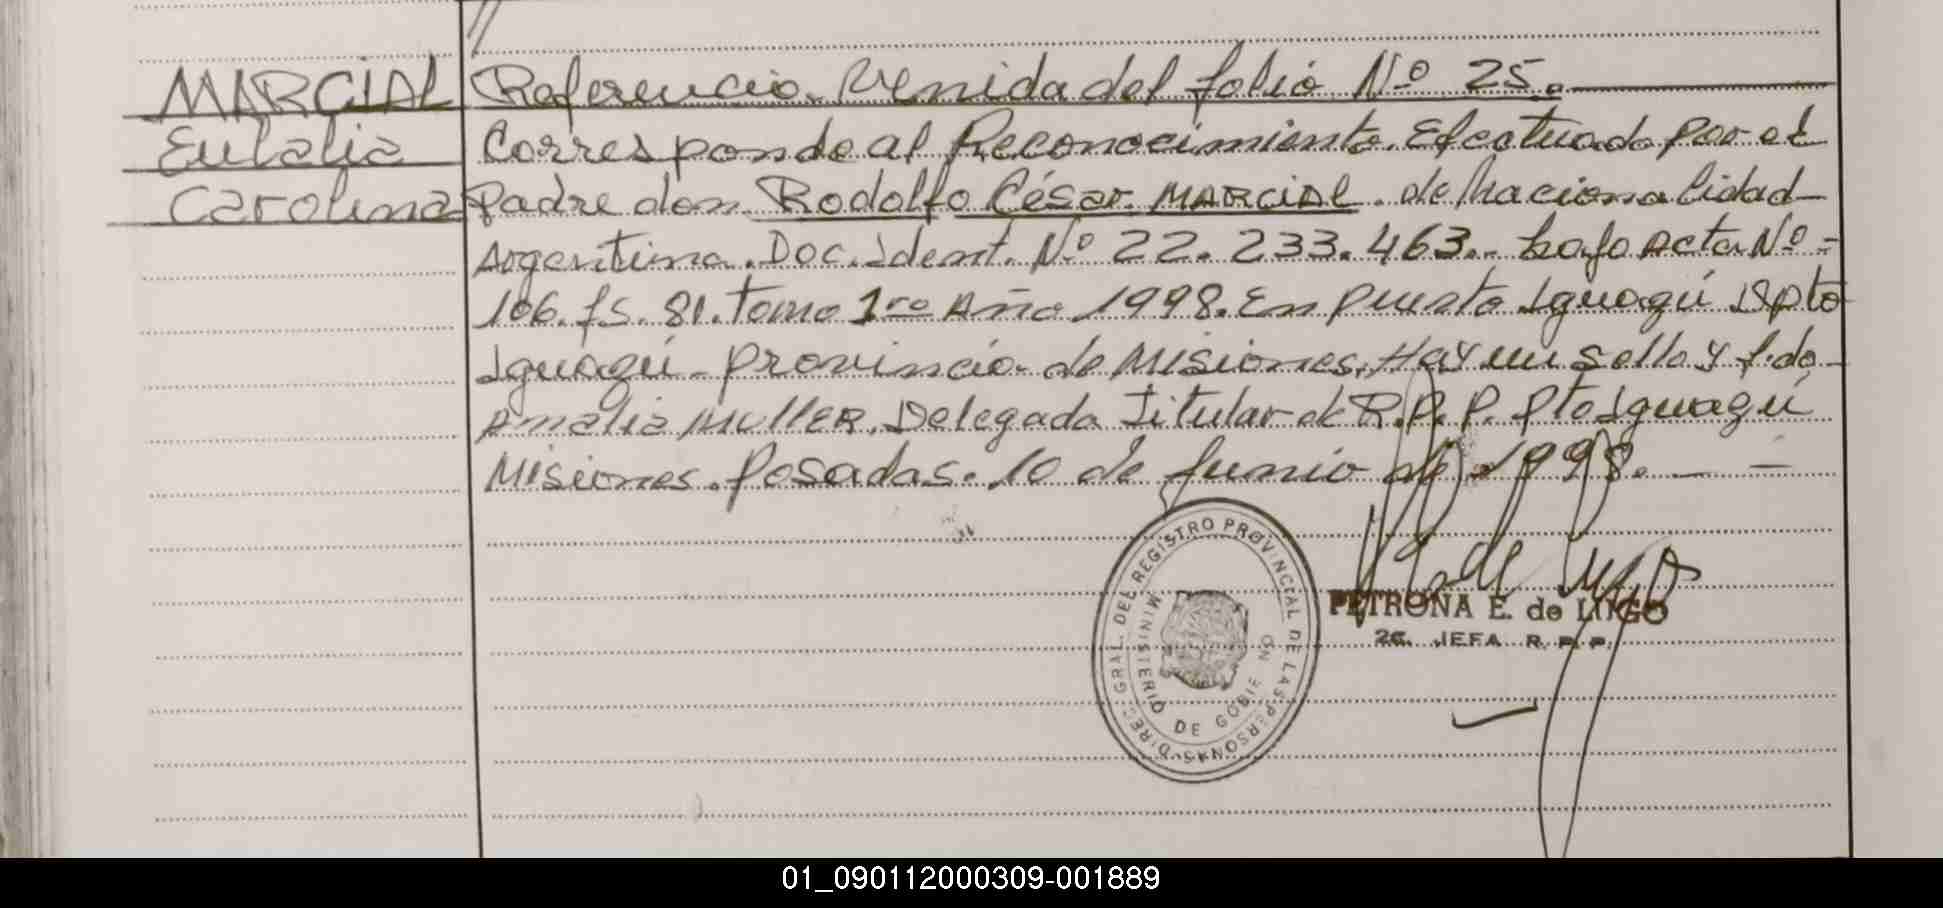 MARCIAL Referencia Venida del folio Nº 25.
Eulalia Corresponde al Reconocimiento Efectuado por el
Carolina Padre don Rodolfo César MARCIAL. de Nacionalidad
Argentina. Doc. Ident. Nº 22.233.463.- bajo Acta Nº -
106. fs. 81. Tomo 1ro Año 1998. En Puerto Iguazú Dpto
Iguazú - Provincia de Misiones. Hay un sello y f.do
Amalia MULLER. Delegada Titular de R.P.P. Pto Iguazú
Misiones. Posadas. 10 de Junio de 1998. — —
DIREC. GRAL. DEL REGISTRO PROVINCIAL DE LAS PERSONAS
MINISTERIO DE GOBIERNO
PETRONA E. de LUGO
2a. JEFA R. P. P.
01_090112000309-001889